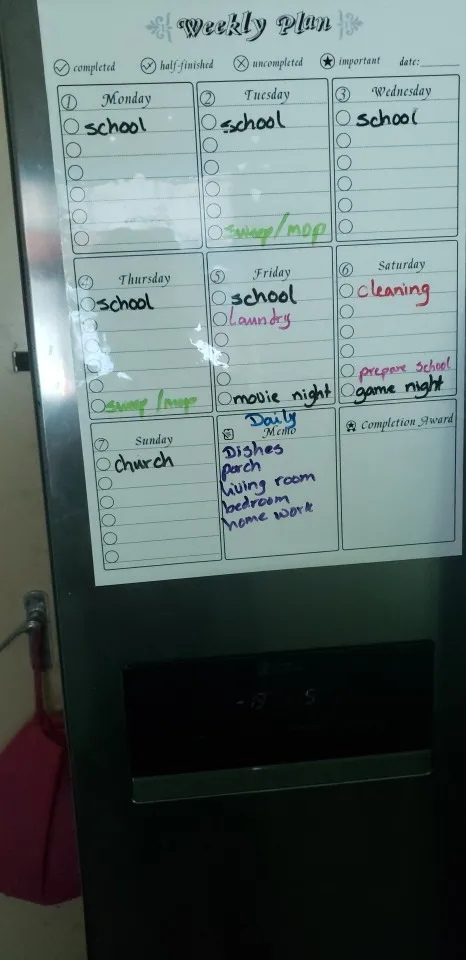 Weekly Plan
completed half-finished uncompleted important date:
1 Monday
school
2 Tuesday
school
sweep/mop
3 Wednesday
school
4 Thursday
school
sweep/mop
5 Friday
school
Laundry
movie night
6 Saturday
cleaning
prepare school
game night
7 Sunday
church
Daily
Memo
Dishes
porch
living room
bedroom
home work
Completion Award